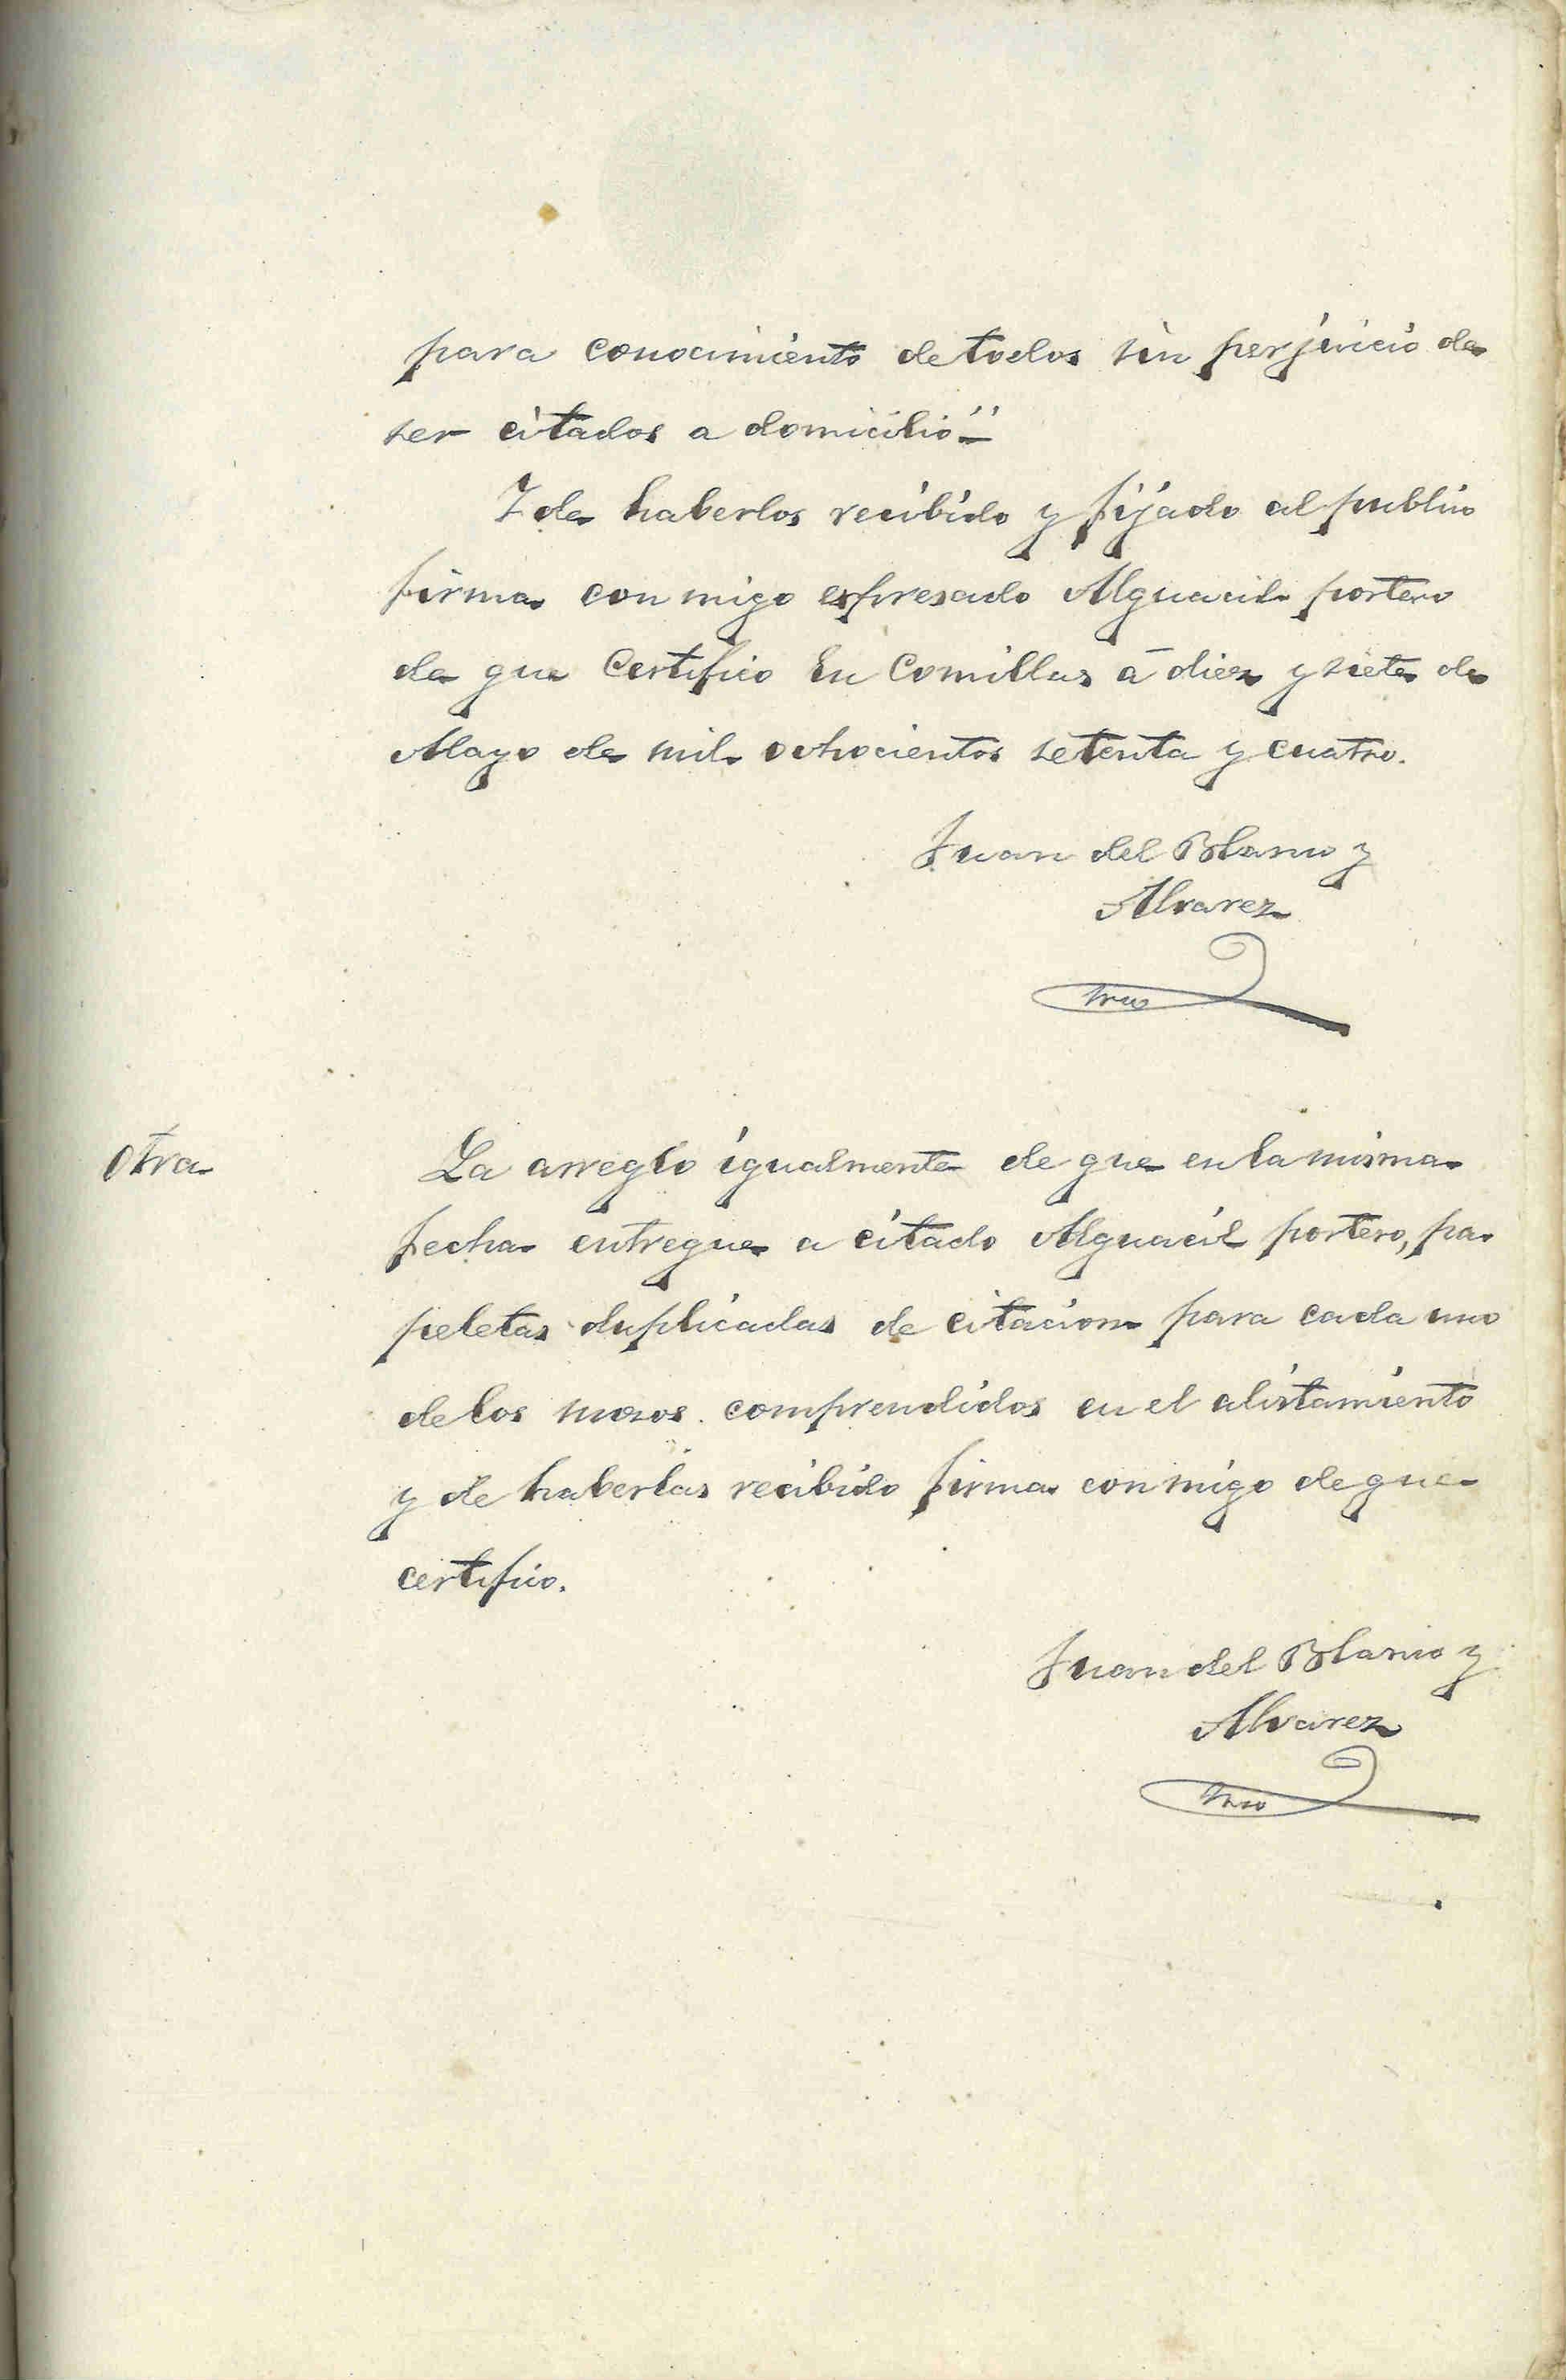 para conocimiento de todos sin perjuicio de
ser citados a domicilio"
Y de haberlos recibido y fijado al publico
firma conmigo espresado Alguacil portero
de que Certifico En Comillas á diez y siete de
Mayo de mil ochocientos setenta y cuatro.
Juan del Blanco y
Alvarez
Srio
Otra
La arreglo igualmente de que en la misma
fecha entregue a citado Alguacil portero, pa-
peletas duplicadas de citacion para cada uno
de los mozos comprendidos en el alistamiento
y de haberlas recibido firma conmigo de que
certifico.
Juan del Blanco y
Alvarez
Srio